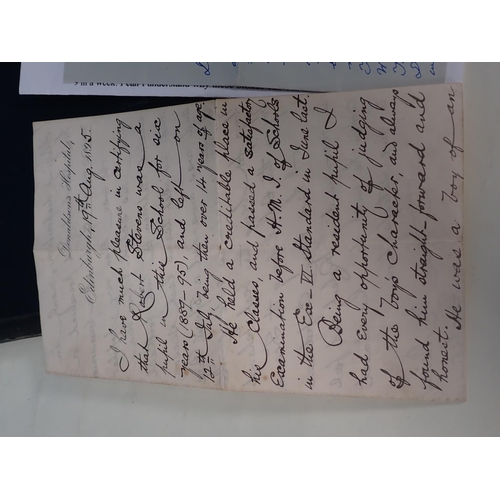 Donaldson's Hospital,
Edinburgh, 19th Aug. 1895.
I have much pleasure in certifying
that Robert Stevens was a
pupil in this School for six
years (1889-95) and left on
12th July being then over 14 years of age.
He held a creditable place in
his Classes and passed a Satisfactory
Examination before H. M. I. of Schools
in the Exc-VI Standard in June last.
Being a resident pupil I
had every opportunity of judging
of the boys character, and always
found him straight-forward and
honest. He was a boy of an
I can I understand why